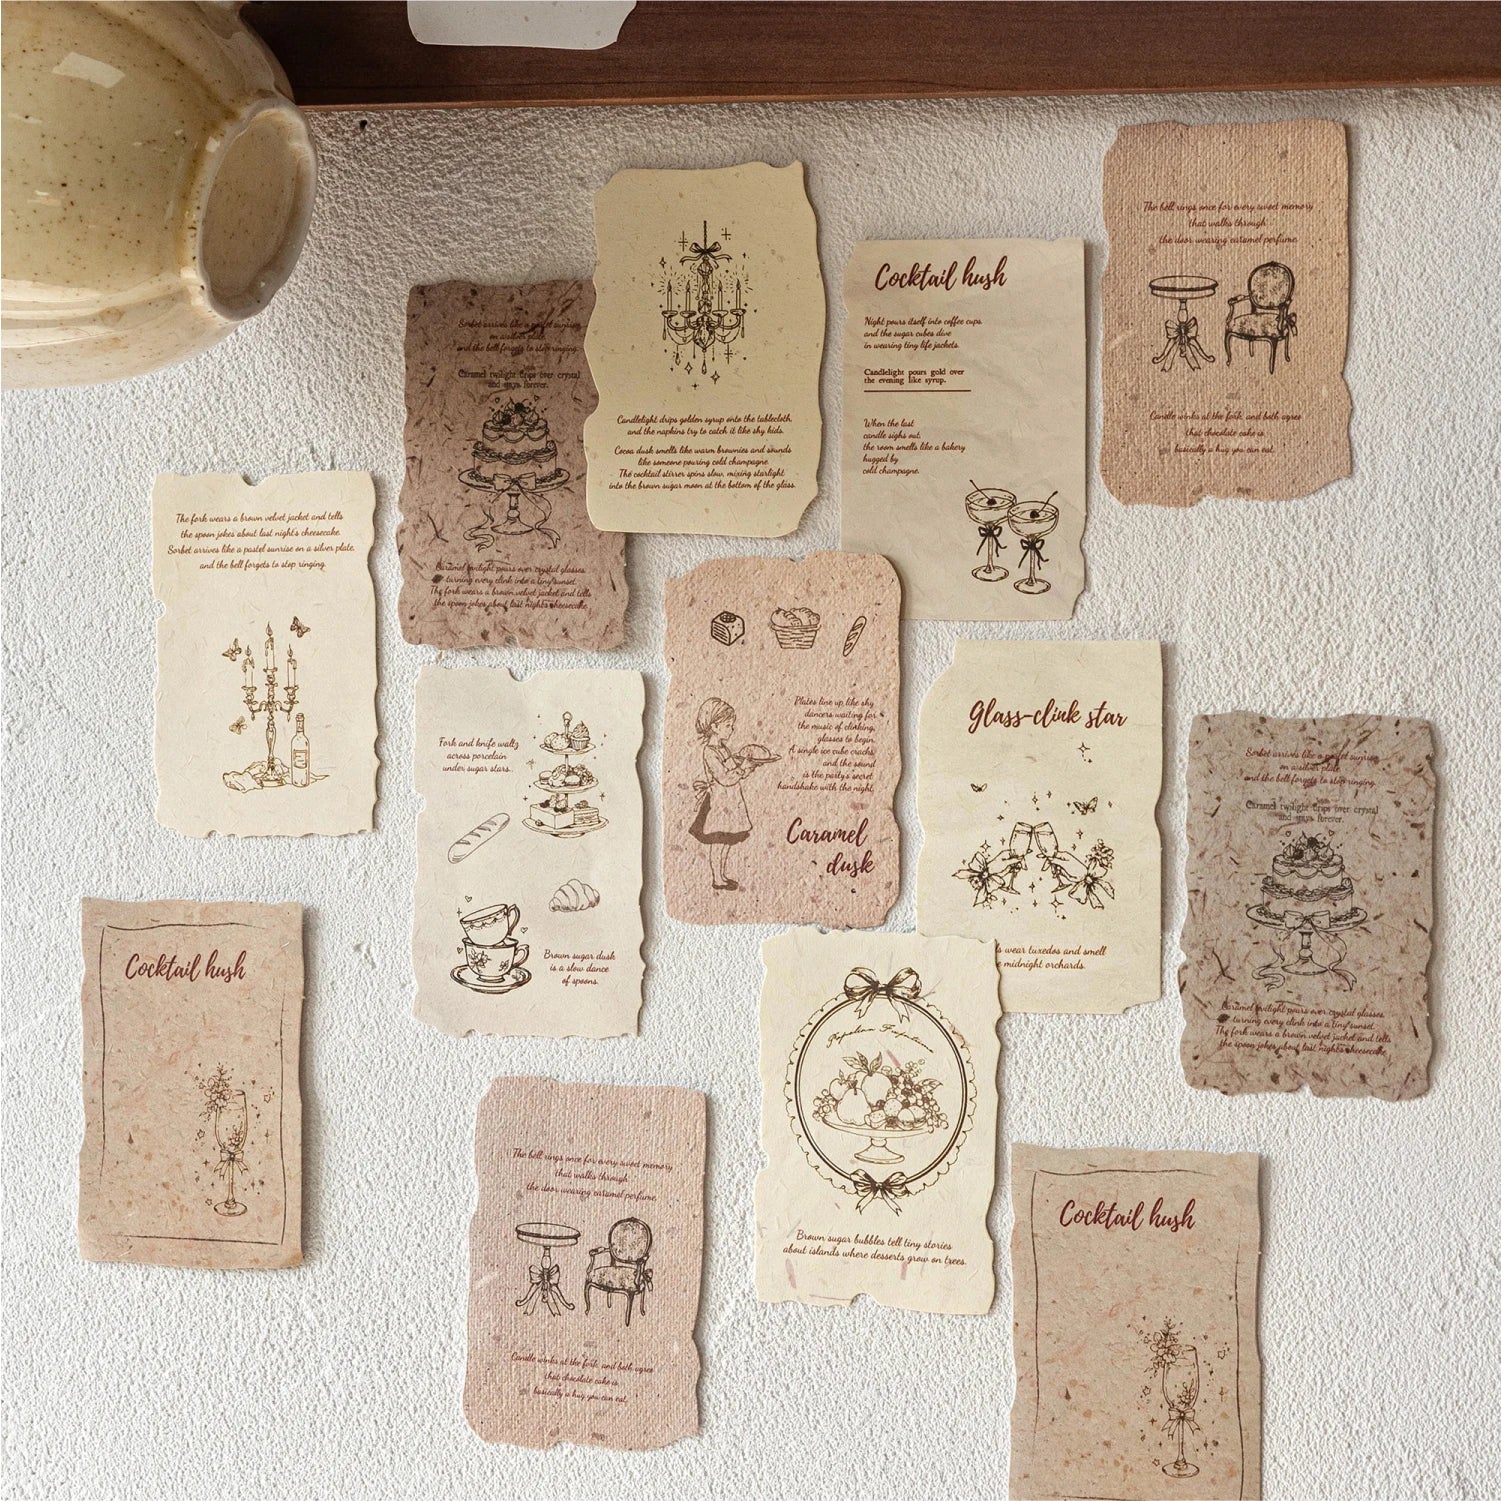 The bell rings once for every sweet memory
that walks through
the door wearing caramel perfume.
Candle winks at the fork, and both agree
that chocolate cake is
basically a hug you can eat.
Cocktail hush
Night pours itself into coffee cups,
and the sugar cubes dive
in wearing tiny life jackets.
Candlelight pours gold over
the evening like syrup.
When the last
candle sighs out,
the room smells like a bakery
hugged by
cold champagne.
Candlelight drips golden syrup onto the tablecloth,
and the napkins try to catch it like shy kids.
Cocoa dusk smells like warm brownies and sounds
like someone pouring cold champagne.
The cocktail stirrer spins slow, mixing starlight
into the brown sugar moon at the bottom of the glass.
Sorbet arrives like a pastel sunrise
on another plate,
and the bell forgets to stop ringing.
Caramel twilight drips over crystal
and stays forever.
Caramel twilight pours over crystal glasses,
turning every clink into a tiny sunset.
The fork wears a brown velvet jacket and tells
the spoon jokes about last night's cheesecake.
The fork wears a brown velvet jacket and tells
the spoon jokes about last night's cheesecake.
Sorbet arrives like a pastel sunrise on a silver plate,
and the bell forgets to stop ringing.
Plates line up like shy
dancers waiting for
the music of clinking
glasses to begin.
A single ice cube cracks,
and the sound
is the party's secret
handshake with the night.
Caramel
dusk
Fork and knife waltz
across porcelain
under sugar stars..
Brown sugar dusk
is a slow dance
of spoons.
Glass-clink star
wear tuxedos and smell
midnight orchards.
Sorbet arrives like a pastel sunrise
on another plate,
and the bell forgets to stop ringing.
Caramel twilight drips over crystal
and stays forever.
Caramel twilight pours over crystal glasses,
turning every clink into a tiny sunset.
The fork wears a brown velvet jacket and tells
the spoon jokes about last night's cheesecake.
Cocktail hush
Brown sugar bubbles tell tiny stories
about islands where desserts grow on trees.
The bell rings once for every sweet memory
that walks through
the door wearing caramel perfume.
Candle winks at the fork, and both agree
that chocolate cake is
basically a hug you can eat.
Cocktail hush